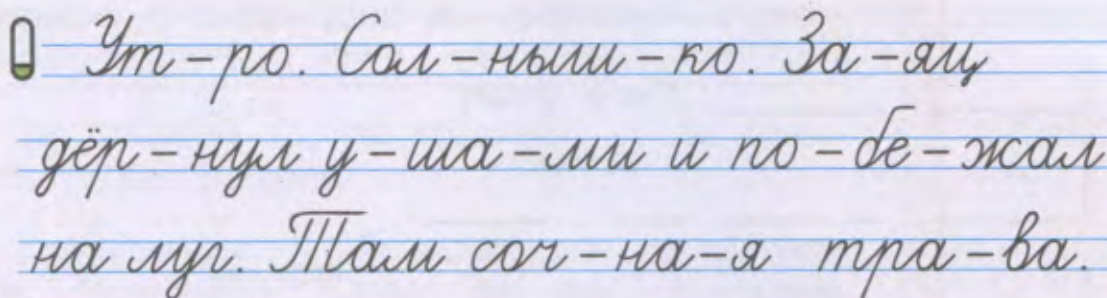 Ут – ро. Сол – ныш – ко. За – яц
дёр – нул у – ша – ми и по – бе – жал
на луг. Там соч – на – я тра – ва.